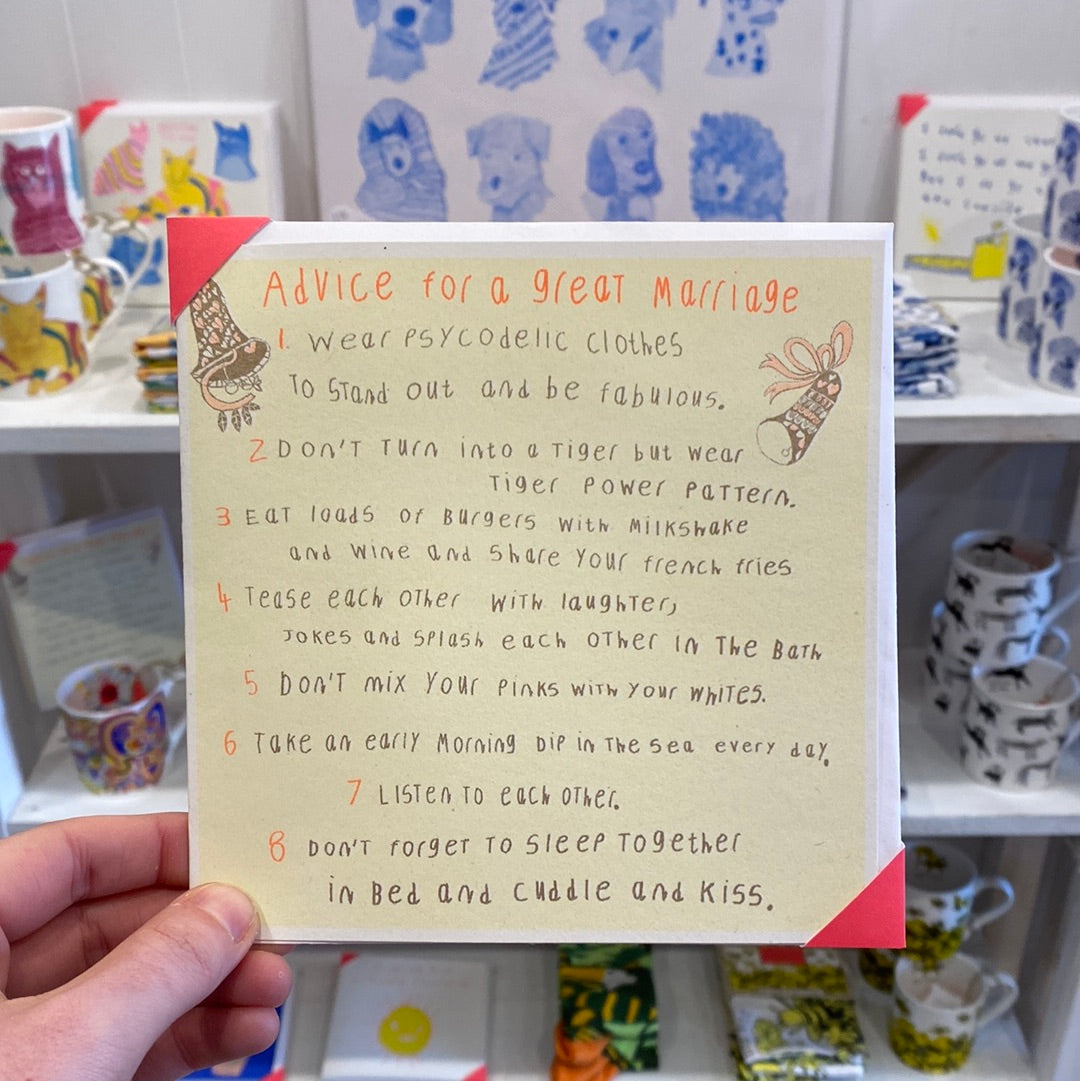 Advice for a great Marriage
1. Wear PSYCODELIC Clothes
To Stand out and be fabulous.
2 DON'T Turn into a Tiger but wear
Tiger Power Pattern.
3 EAT loads of Burgers with Milkshake
and wine and Share Your french fries
4 Tease each other with laughter,
Jokes and splash each other in The Bath
5 DON'T mix Your Pinks with Your whites.
6 Take an early Morning Dip in The Sea every day.
7 Listen To each other.
8 DON'T forget To Sleep Together
in Bed and Cuddle and Kiss.